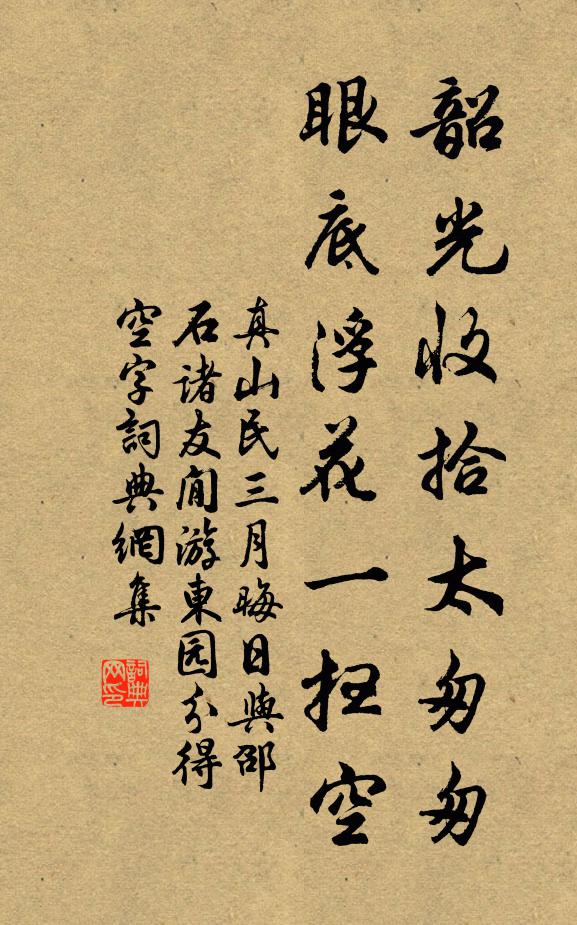 韶光收拾太匆匆
眼底浮花一扫空
真山民三月晦日與邵
石诸友閒游東园分得
空字詞典網集
詞典网印